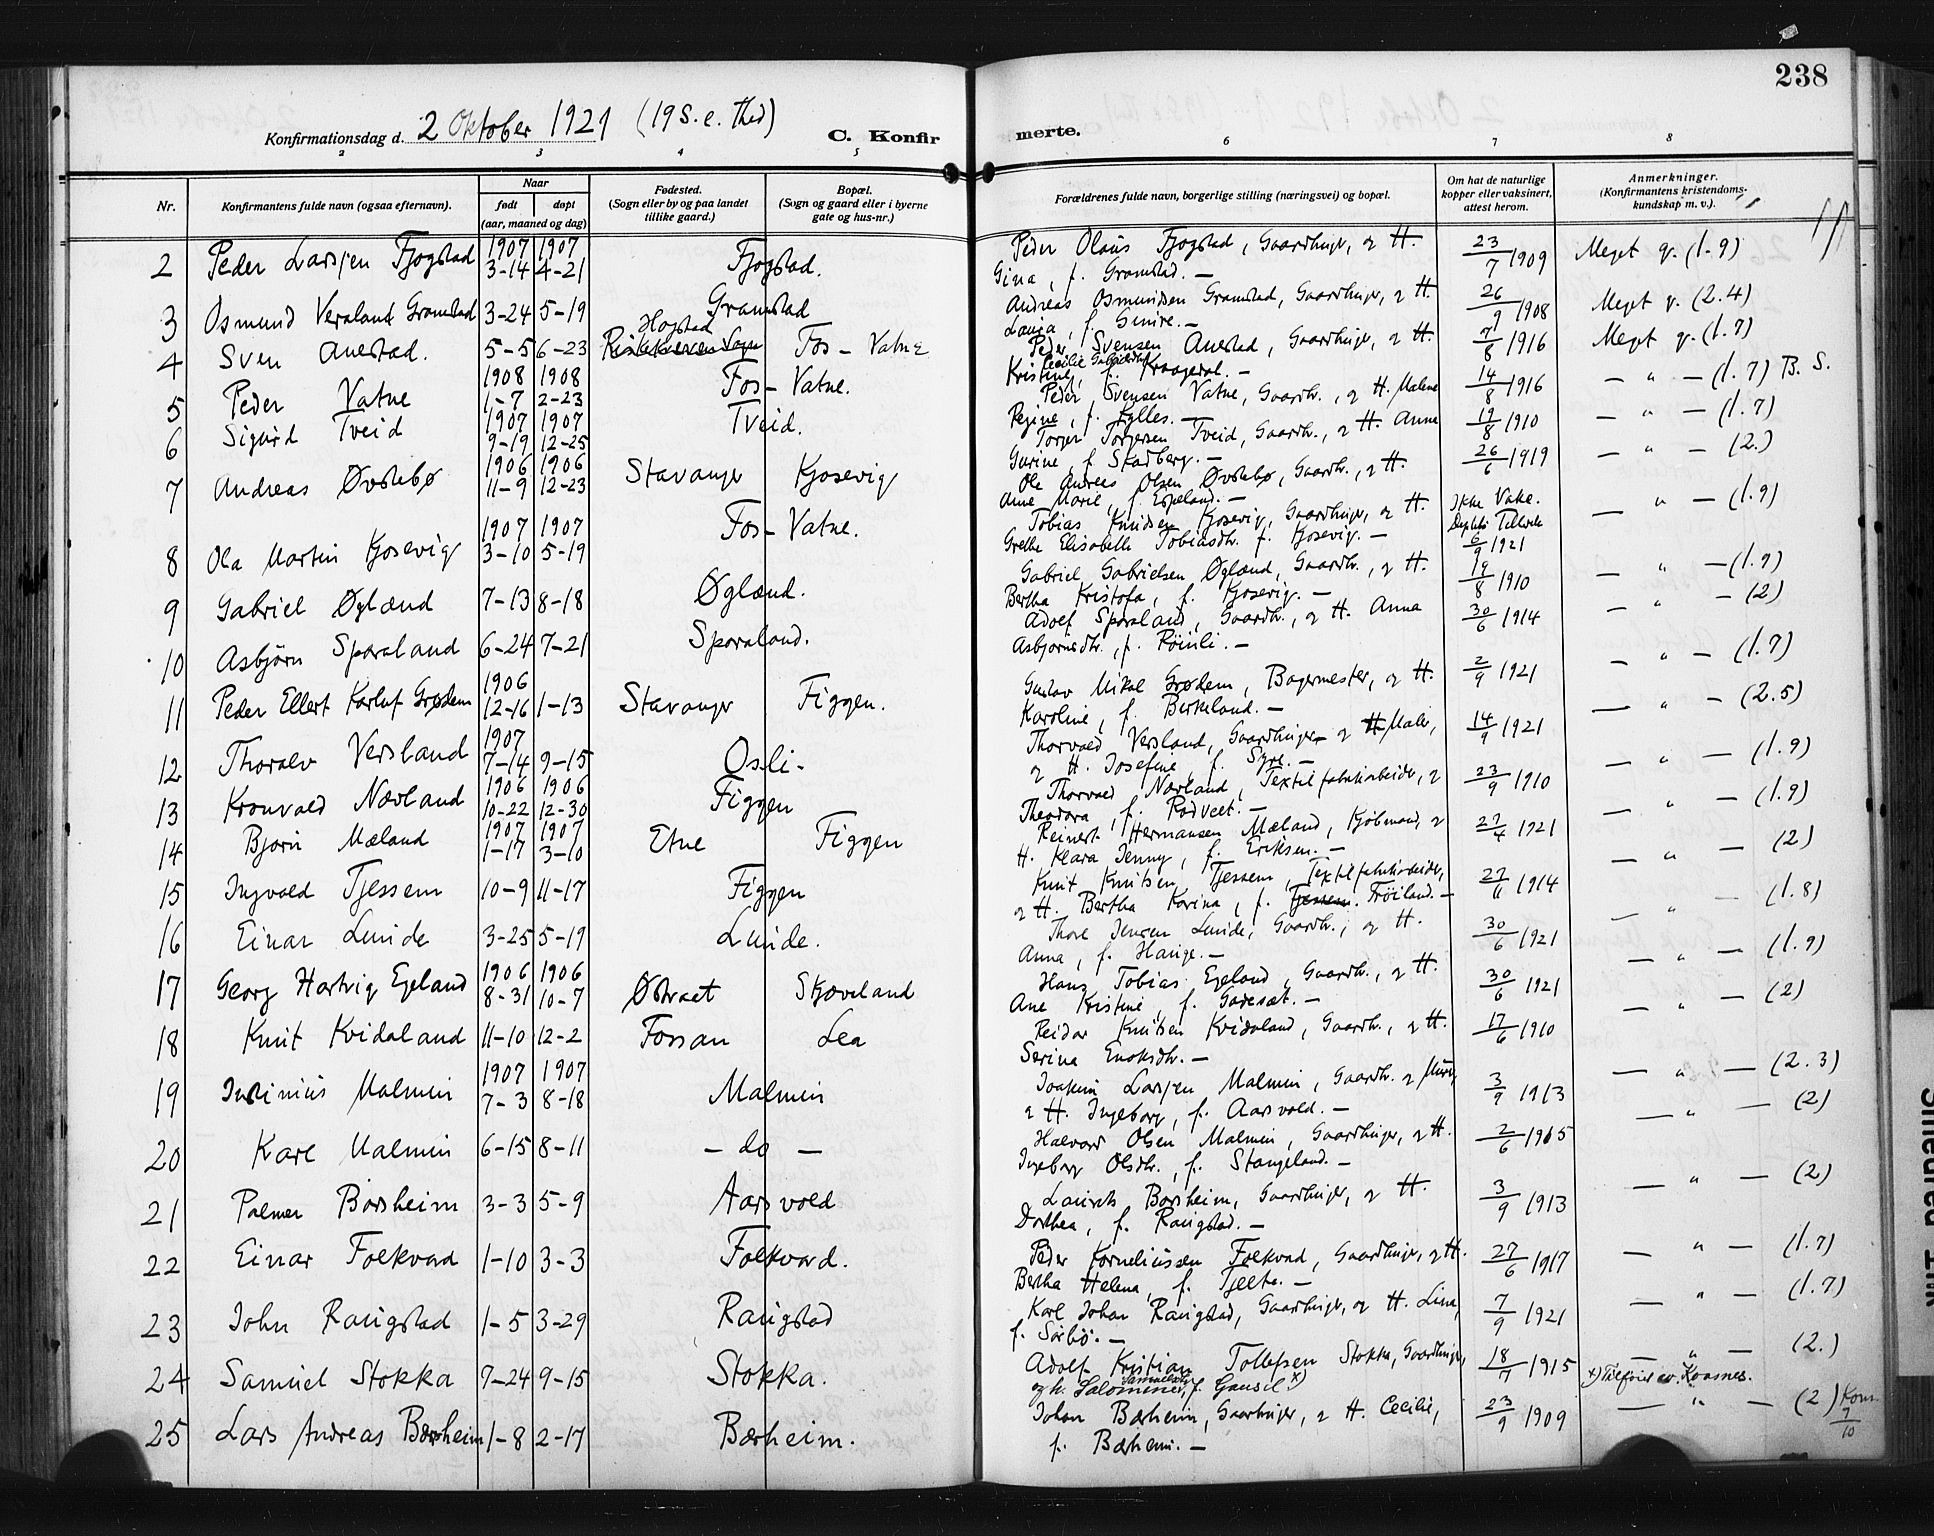 238
Konfirmationsdag d. 2 Oktober 1921 (19 S. e. Tred)
C. Konfirmerte.
2 3 4 5 6 7 8
Nr.
Konfirmantens fulde navn (ogsaa efternavn).
Naar
født døpt
(aar, maaned og dag)
Fødested.
(Sogn eller by og paa landet
tillike gaard.)
Bopæl.
(Sogn og gaard eller i byerne
gate og hus-nr.)
Forældrenes fulde navn, borgerlige stilling (næringsvei) og bopæl.
Om hat de naturlige
kopper eller vaksinert,
attest herom.
Anmerkninger.
(Konfirmantens kristendoms-
kundskap m. v.)
2 Peder Larsen Fjogstad 1907 3-14 1907 4-21 Fjogstad. Peder Olaus Fjogstad, Gaardbruger, og H. 23/7 1909 Meget g. (1.9)
Gina, f. Gramstad. —
3 Osmund Veraland Gramstad 3-24 5-19 Gramstad Andreas Osmundsen Gramstad, Gaardbruger, og H. 26/9 1908 Meget g. (2.4)
Laura, f. Gimre. —
4 Sven Auestad. 5-5 6-23 Hogstad Fos-Vatne Peder Svensen Auestad, Gaardbruger, og H. 7/8 1916 Meget g. (1.7)
Kristine, Cecilie Gabrielsdtr f. Kraagedal. —
5 Peder Vatne 1908 1-7 1908 2-23 Fos-Vatne. Peder Svensen Vatne, Gaardbr., og H. Malene 14/8 1916 — " — (1.7) B. S.
Regine, f. Fylles. —
6 Sigurd Tveid 1907 9-19 1907 12-25 Tveid. Torger Torgersen Tveid, Gaardbr., og H. Anna 19/8 1910 — " — (1.7)
Gurine, f. Stadberg. —
7 Andreas Øvstebø 1906 11-9 1906 12-23 Stavanger Kjosevig Ole Andreas Olsen Øvstebø, Gaardbr., og H. 26/6 1919 — " — (2.)
Ane Marie, f. Espeland. —
8 Ola Martin Kjosevig 1907 3-10 1907 5-19 Fos-Vatne. Tobias Knudsen Kjosevig, Gaardbruger, og H. Ikke Vakc. — " — (1.9)
Grethe Elisabeth Tobiasdtr. f. Kjosevig. — 6/9 1921
9 Gabriel Øglænd 7-13 8-18 Øglænd. Gabriel Gabrielsen Øglænd, Gaardbr., og H. 19/8 1910 — " — (1.9)
Bertha Kristofa, f. Kjosevig. —
10 Asbjörn Sporaland 6-24 7-21 Sporaland. Adolf Sporaland, Gaardbr., og H. Anna 30/6 1914 — " — (2)
Asbjornsdtr., f. Röinli. —
11 Peder Ellert Karluf Grødem 1906 12-16 1-13 Stavanger Figgen. Gustav Mikal Grødem, Bagermester, og H. 2/9 1921 — " — (1.7)
Karoline, f. Berkeland. —
12 Thoralv Versland 1907 7-14 9-15 Osli- Thorvald Versland, Gaardbruger og Maler, 14/9 1921 — " — (2.5)
og H. Josefine, f. Skjre. —
13 Kronvald Nævland 1906 10-22 1906 12-30 Figgen Thorvald Nævland, Textilfabrikarbeider, og 23/9 1910 — " — (1.9)
Theodora, f. Rødveet. —
14 Bjorn Mæland 1907 1-17 1907 3-10 Etne Figgen Reinert Hermansen Mæland, Kjöbmand, og 27/4 1921 — " — (1.9)
H. Klara Jenny, f. Eriksen. —
15 Ingvald Tjessem 10-9 11-17 Figgen Knut Knutsen Tjessem, Textilfabrikarbeider, 27/11 1914 — " — (2)
og H. Bertha Karina, f. Tjessem. Fröiland. —
16 Einar Lunde 3-25 5-19 Lunde. Thore Jensen Lunde, Gaardbr., og H. 30/6 1921 — " — (1.8)
Anna, f. Hauge. —
17 Georg Hartvig Egeland 1906 8-31 1906 10-7 Østraat Skjæveland Hans Tobias Egeland, Gaardbr., og H. 30/6 1921 — " — (1.9)
Ane Kristine, f. Gadesæt. —
18 Knut Kvidaland 11-10 12-2 Fossan Lea Reidar Knutsen Kvidaland, Gaardbr., og H. 17/6 1910 — " — (2)
Serina Enoksdtr. —
19 Malmin 1907 7-3 1907 8-18 Malmin Joakim Larsen Malmin, Gaardbr. og Murer, 3/9 1913 — " — (2.3)
og H. Ingeborg, f. Aarsvold. —
20 Karl Malmin 6-15 8-11 — do — Halvard Olsen Malmin, Gaardbruger, og H. 2/6 1915 — " — (2)
Ingeborg Olsdtr., f. Stangeland. —
21 Palmer Borsheim 3-3 5-9 Aarsvold Laurits Borsheim, Gaardbruger, og H. 3/9 1913 — " — (2)
Dorthea, f. Raugstad. —
22 Einar Folkvord 1-10 3-3 Folkvord. Peder Korneliussen Folkvord, Gaardbruger, og H. 27/6 1917 — " — (1.7)
Bertha Helena, f. Tjelta. —
23 John Raugstad 1-5 3-29 Raugstad Karl Johan Raugstad, Gaardbruger, og H. Lina, 7/9 1921 — " — (1.7)
f. Sörbö. —
24 Samuel Stokka 7-24 9-15 Stokka. Adolf Kristian Tollefsen Stokka, Gaardbruger, 18/7 1915 — " — (2.)
og h. Salomine Samuelsdtr, f. Gausel x) x) Tilføiet ov. Kvasnes.
25 Lars Andreas Bærheim 1-8 2-17 Bærheim. Johan Bærheim, Gaardbruger, og H. Cecilie, 23/9 1909 — " — (2) Kom. 7/10
f. Bærheim. —